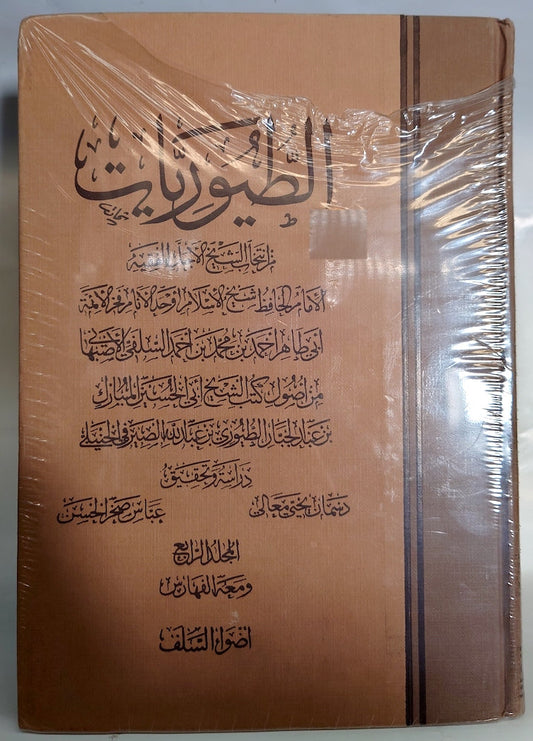 الطُّيُورِيَّات
من انتخاب الشيخ الإمام الفقيه
الإمام الحافظ شيخ الإسلام أوحد الأنام فخر الأئمة
أبي طاهر أحمد بن محمد بن أحمد السلفي الأصبهاني
من أصول كتب الشيخ أبي الحسين المبارك
بن عبد الجبار الطيوري بن عبد الله الصيرفي الحنبلي
دراسة وتحقيق
دسمان يحيى معالي عباس صخر الحسن
المجلد الرابع
ومعه الفهارس
أضواء السلف